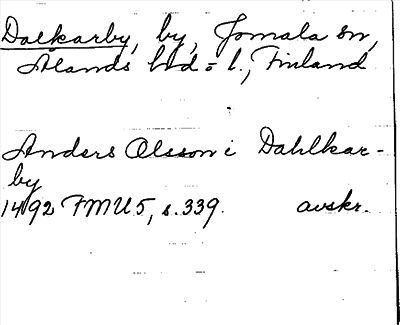 Dalkarby, by, Jomala sn,
Ålands hd = l., Finland
Anders Olsson i Dahlkar-
by
1492 FMU 5, s. 339. avskr.